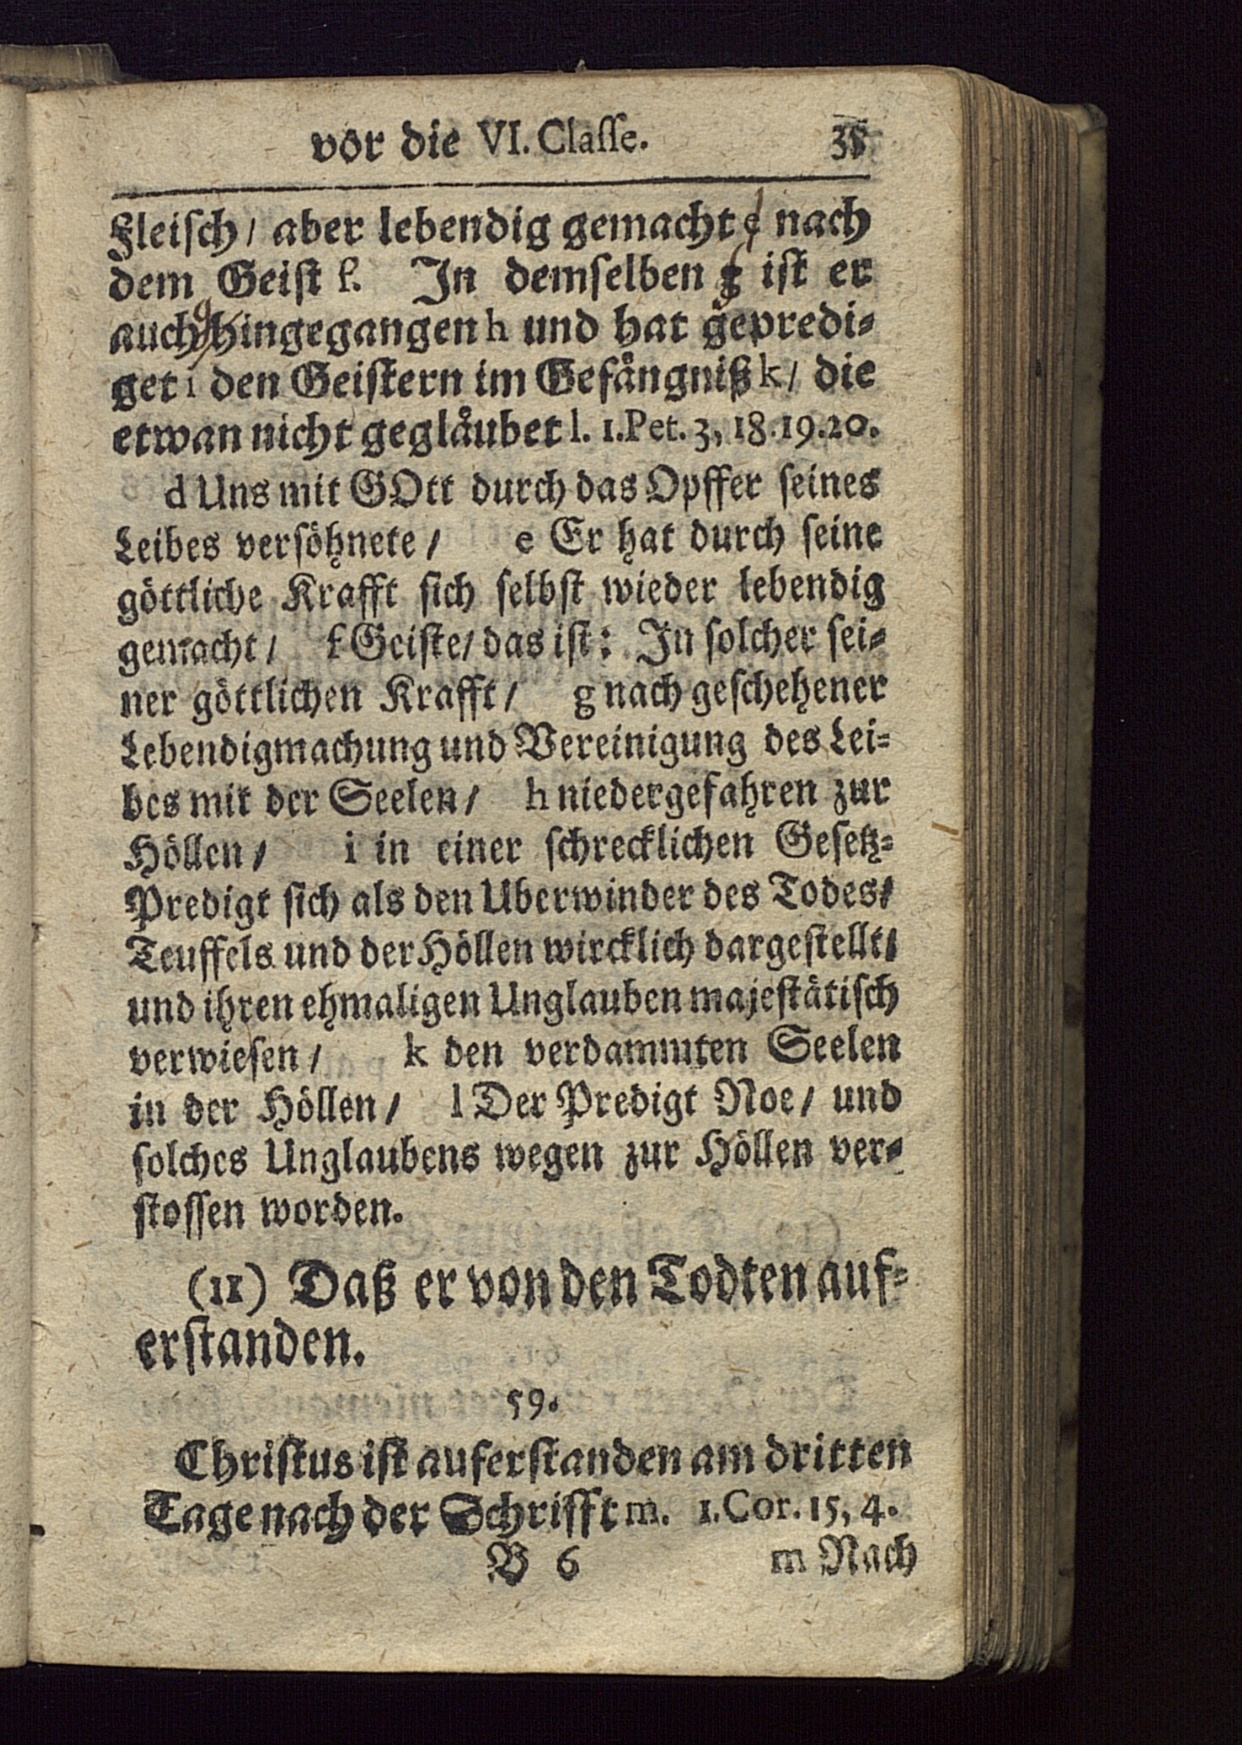 vor die VI. Claſſe. 35
Fleiſch/ aber lebendig gemacht e nach
dem Geiſt f. In demſelben g iſt er
auch hingegangen h und hat gepredi-
get i den Geiſtern im Gefaͤngniß k/ die
etwan nicht geglaͤubet l. 1.Pet. 3, 18.19.20.
d Uns mit GOtt durch das Opffer ſeines
Leibes verſoͤhnete/ e Er hat durch ſeine
goͤttliche Krafft ſich ſelbſt wieder lebendig
gemacht/ f Geiſte/ das iſt: In ſolcher ſei-
ner goͤttlichen Krafft/ g nach geſchehener
Lebendigmachung und Vereinigung des Lei-
bes mit der Seelen/ h niedergefahren zur
Hoͤllen/ i in einer ſchrecklichen Geſetz-
Predigt ſich als den Uberwinder des Todes/
Teuffels und der Hoͤllen wircklich dargeſtellt/
und ihren ehmaligen Unglauben majeſtaͤtiſch
verwieſen/ k den verdammten Seelen
in der Hoͤllen/ l Der Predigt Noe/ und
ſolches Unglaubens wegen zur Hoͤllen ver-
ſtoſſen worden.
(11) Daß er von den Todten auf-
erſtanden.
59.
Chriſtus iſt auferſtanden am dritten
Tage nach der Schrifft m. 1.Cor. 15, 4.
B 6 m Nach